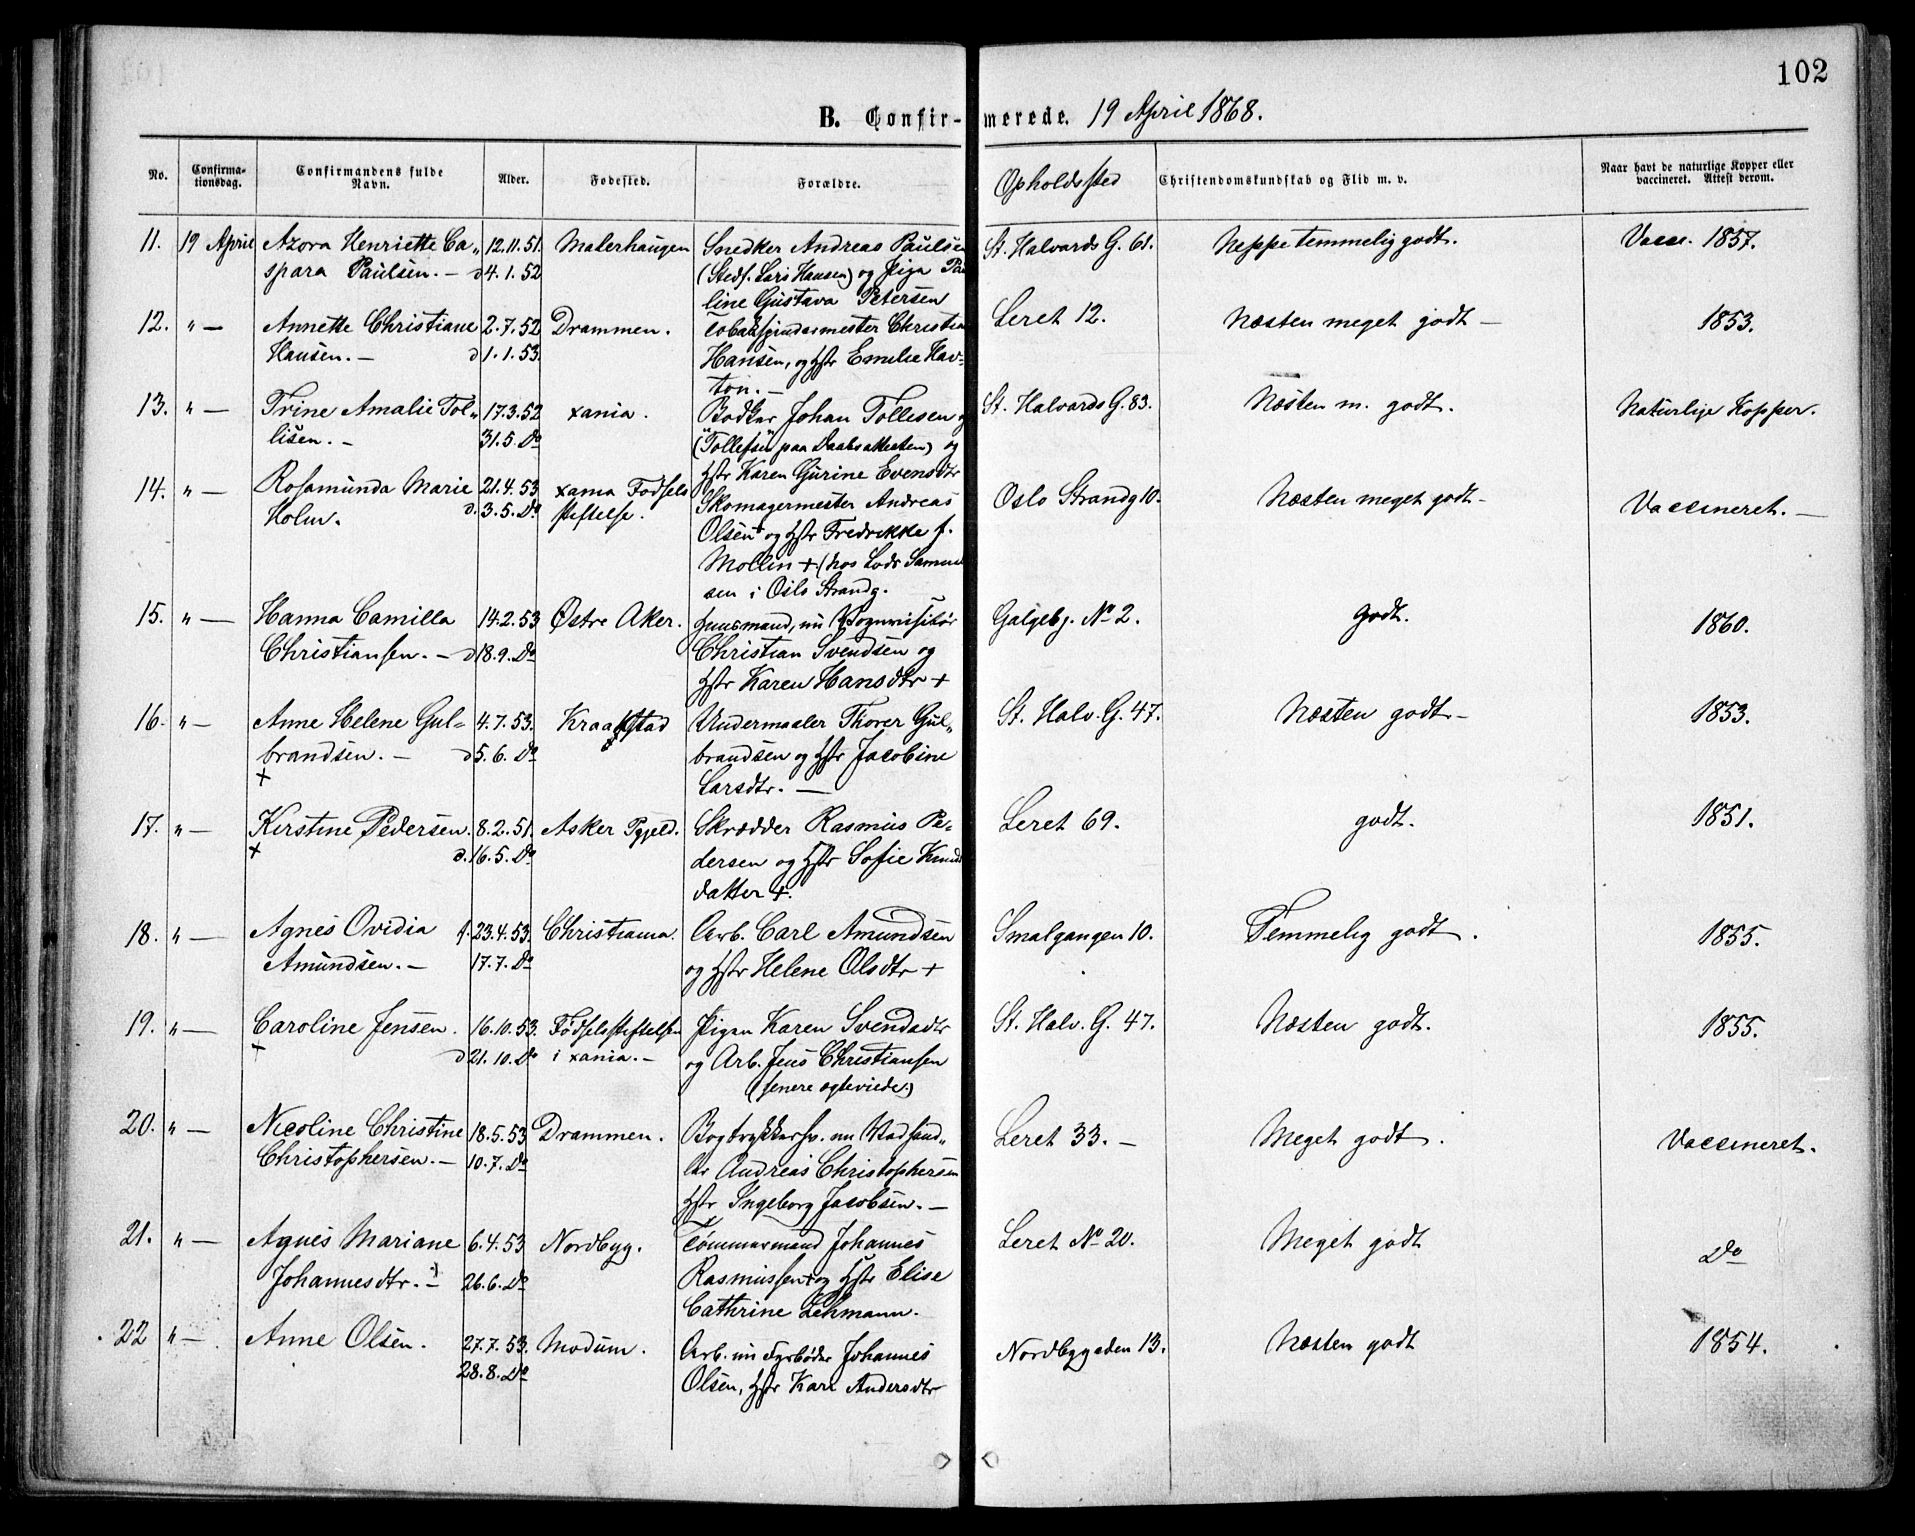 102
B. Confirmerede. 19 April 1868.
No. Confirmationsdag. Confirmandens fulde Navn. Alder. Fødested. Forældre. Opholdssted Christendomskundskab og Flid m. v. Naar havt de naturlige Kopper eller vaccineret. Attest derom.
11. 19 April Azora Henriette Ca- 12.11.51. Malerhaugen Snedker Andreas Paulsen St. Halvards G. 61. Neppe temmelig godt. Vacc. 1857.
spara Paulsen. — d 4.1.52 (Stedf. Lars Hansen) og Pige Pau
line Gustava Petersen
12. " — Annette Christiane 2.7.52 Drammen. Christian Leret 12. Næsten meget godt — 1853.
Hansen. — d 1.1.53. Hansen, og Hstr Emilie Hav-
ton. —
13. " — Trine Amalie Tol- 17.3.52 xania. Bødker Johan Tollesen og St. Halvards G. 83. Næsten m. godt. Naturlige Kopper.
lisen. — 31.5. Do ("Tollefsen" paa Daabsattesten) og
Hstr Karen Gurine Evensdtr
14. " — Rosamunda Marie 21.4.53 xania Fødsels Skomagermester Andreas Oslo Strandg 10. Næsten meget godt — Vaccineret. —
Holm. d. 3.5. Do stiftelse. Olsen + og Hstr Fredrikke f.
Mollin + (hos Lods Samuel
sen i Oslo Strandg.
15. " — Hanna Camilla 14.2.53 Østre Aker. Huusmand, nu Christian Svendsen og Galgebg. No 2. godt. 1860.
Christiansen. — d 18.9. Do
Hstr Karen Hansdtr +
16. " — Anne Helene Gul- 4.7.53. Kraakstad Undermaaler Thorer Gul- St. Halv. G. 47. Næsten godt — 1853.
brandsen. — d 5.6. Do brandsen og Hstr Jacobine
+ Larsdtr. —
17. " — Kirstine Pedersen. 8.2.51. Asker Pgjeld. Skrædder Rasmus Pe- Leret 69. godt. 1851.
+ d. 16.5. Do dersen og Hstr Sofie Knuds
datter +.
18. " — Agnes Ovidia f. 23.4.53. Christiania. Arb. Carl Amundsen Smalgangen 10. Temmelig godt. 1855.
Amundsen. — 17.7. Do og Hstr Helene Olsdtr +
19. " — Caroline Jensen. 16.10.53. Fødselsstiftelsen Pigen Karen Svendsdtr St. Halv. G. 47. Næsten godt. 1855.
+ d 21.10. Do i xania. — og Arb. Jens Christiansen
(senere ægteviede.)
20. " — Nicoline Christine 18.5.53 Drammen. Bogtrykkersv. nu Vadhand- Leret 33. — Meget godt. Vaccineret.
Christophersen. — 10.7. Do ler Andreas Christophersen
Hstr Ingeborg Jacobsen. —
21. " — Agnes Mariane 6.4.53 Nordbyg. Tømmermand Johannes Leret No 20. Meget godt Do
Johannesdtr. — 26.6. Do Rasmussen + og Hstr Elise
Cathrine Lehmann.
22 " — Anne Olsen. 27.7.53. Modum. Arb. nu Fyrbøder Johannes Nordbygaden 13. Næsten godt 1854.
28.8. Do Olsen, Hstr Kari Andersdtr